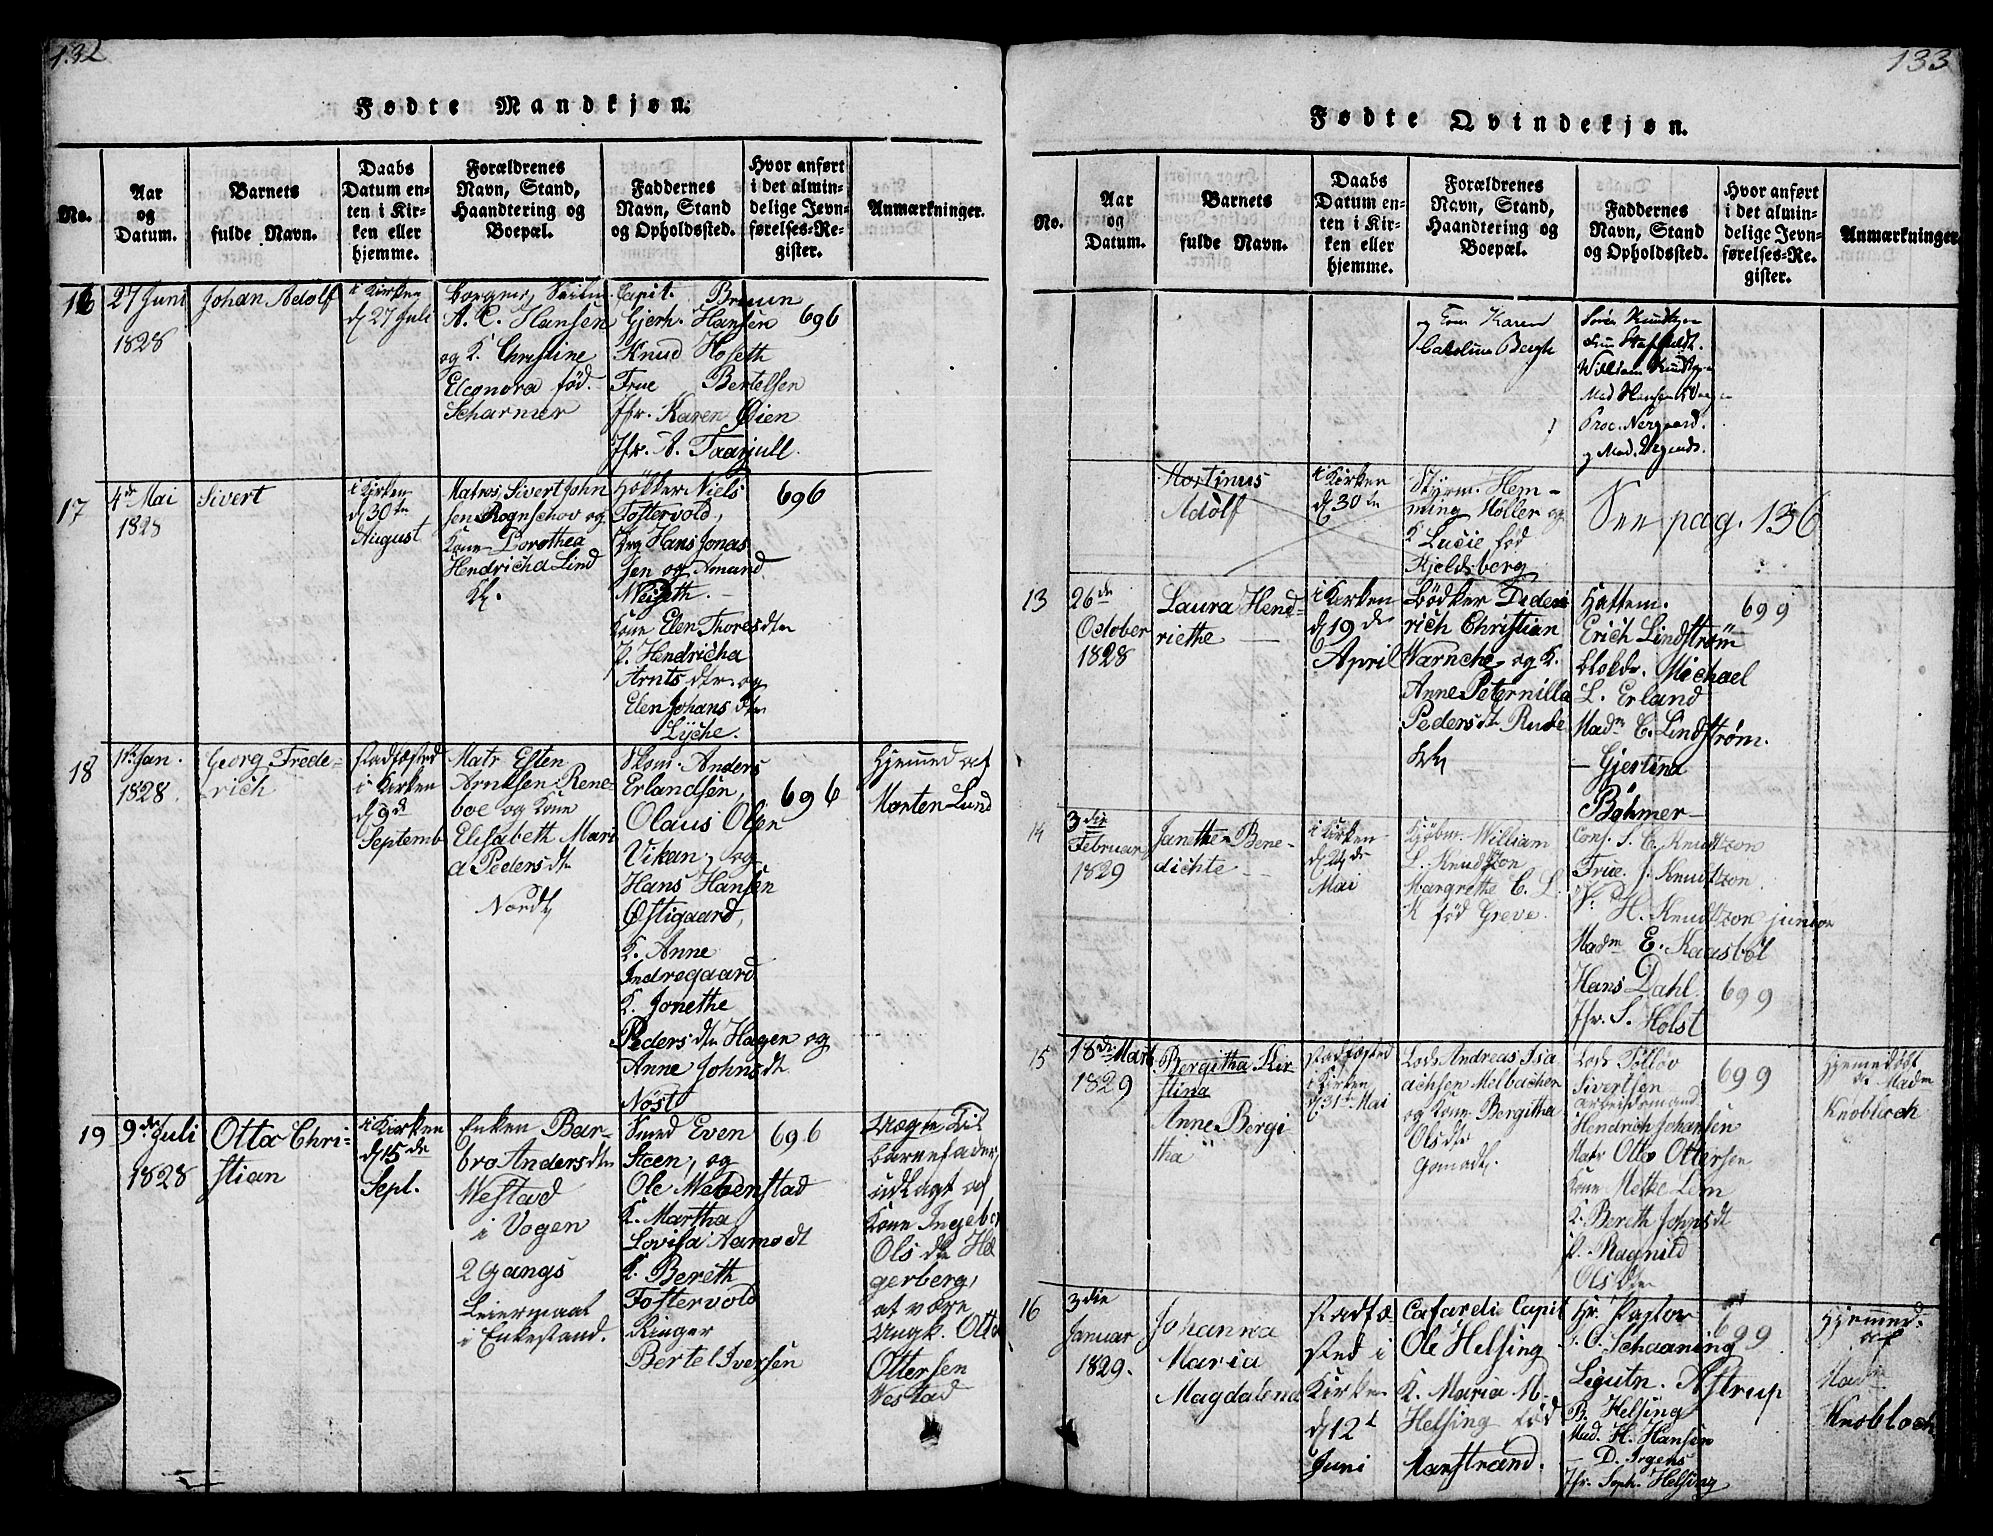 132
Fødte Mandkjøn.
No.
Aar
og
Datum.
Barnets
fulde Navn.
Daabs
Datum en-
ten i Kir-
ken eller
hjemme.
Forældrenes
Navn, Stand,
Haandtering og
Boepæl.
Faddernes
Navn, Stand
og Opholdssted.
Hvor anført
i det almin-
delige Jevn-
førelses-Re-
gister.
Anmærkninger.
16
27 Juni
1828
Johan Adolf
i Kirken
d 27 Juli
A. C. Hansen
og K. Christine
Eleonora fød.
Scharmer
Capit. Bruun
Gjerh. Hansen
Knud Hoseth
Frue Bertelsen
Jfr. Karen Øien
Jfr. A. Taarjull
696
17
4de Mai
1828
Sivert
i Kirken
d 30te
August
Matros Sivert John
sen Rognschov og
Kone Dorothea
Hendricha Lind
Niels
Fostervold,
Hans Jonas
sen og Amund
Neigeth.
Kone Elen Thoresdtr
P. Hendricha
Arntsdtr og
Elen Johansdtr
Lyche.
696
18
1st Jan.
1828
Georg Frede-
rich
stadfæsted
i Kirken
d 9d
Septemb
Matr Esten
Arntsen Rene-
boe og Kone
Elisabeth Mari
a Pedersdtr
Skom. Anders
Erlandsen,
Olaus Olsen
Vikan, og
Hans Hansen
Østigaard,
K. Anne
Indregaard
K. Jonethe
Pedersdtr Hagen og
Anne Johnsdt.
Nøst
696
Hjemmed af
Morten Lund
19
9de Juli
1828
Otto Chri-
stian
i Kirken
d 15de
Sept.
Enken Bar-
bro Andersdtr
Westad
i Vogen
2 Gangs
Leiermaal
i Enkestand.
Smed Even
Steen, og
Ole Mebenstad
K. Martha
Lovisa Aamodt
K. Bereth
Fostervold
Ringer
Bertel Iversen
696
Uægte Til
barnefader,
udlagt af
Kone Ingebor
Olsdtr He
gerberg,
at være
Ungk. Otto
Ottersen
Westad
133
Fødte Qvindekjøn.
No.
Aar
og
Datum.
Barnets
fulde Navn.
Daabs
Datum en-
ten i Kir-
ken eller
hjemme.
Forældrenes
Navn, Stand,
Haandtering og
Boepæl.
Faddernes
Navn, Stand
og Opholdssted.
Hvor anført
i det almin-
delige Jevn-
førelses-Re-
gister.
Anmærkninger.
Karen
Bergh
William Knudtzon
Nergaard.
Mortinus
Adolf
i Kirken
d 30te
Styrm. Hem-
ming Møller og
K Lucie fød
Kjeldsberg
See pag. 136
13
26de
October
1828
Laura Hend-
riethe
i Kirken
d 19de
April
Bødker Dideri
rich Christian
Warnche og K.
Anne Peternilla
Pedersdtr Rude
Hattem.
Erich Lindstrøm
Blokdr. Michael
L. Erland
Madm C. Lindstrøm.
- Gjertina
Bøhmer-
699
14
3die
Februar
1829
Janthe Bene-
dichte
i Kirken
d 24de
Mai
Kjøbm. William
L. Knudtzon
Margrethe C. L.
K fød Greve.
Cons. S. C. Knudtzon
Frue J. Knudtzon.
H. Knudtzon junior
Madm E. Kaasbøl
Hans Dahl.
Jfr. S. Holst
699
15
18de Marts
1829
Bergitha Kir
stina
Anne Bergi
tha
stadfæsted
i Kirken
d 31te Mai
Lods Andreas Isa
achsen Melbachen
og Kone Bergitha
Olsdtr
Lods Tølløv
Sivertsen
Arbeidsmand
Hendrich Johansen
Matr Otto Ottersen
Kone Methe Lem
K. Bereth Johnsdt
P. Ragnild
Olsdtr
699
Hjemmedøbt
Madm
Knobloch
16
3die
Januar
1829.
Johanna
Maria
Magdalena
stadfæ
sted i
Kirken
d 12t
Juni
Cofardi Capit
Ole Helsing
K. Maria M.
Helsing fød
Marstrand.
Hr. Pastor
Schaaning
Lieutn. Astrup
B. Helsing
Mad. H. Hansen
- D. Irgens
Jfr. Soph. Helsing
699
Hjemmed.
af
Madm
Knobloch